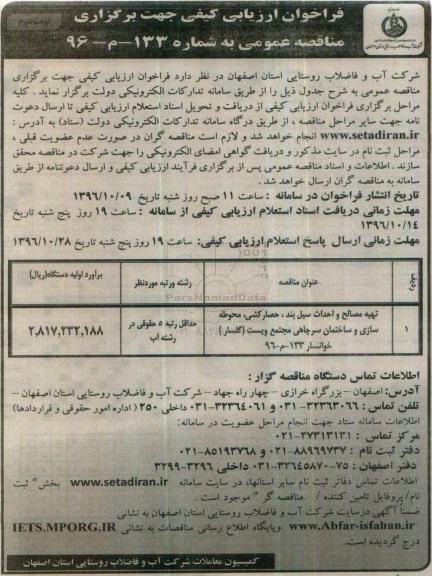 فراخوان ارزیابی کیفی جهت برگزاری
مناقصه عمومی به شماره ۱۳۳-م-۹۶
شرکت آب و فاضلاب روستایی استان اصفهان در نظر دارد فراخوان ارزیابی کیفی جهت برگزاری
مناقصه عمومی به شرح جدول ذیل را از طریق سامانه تدارکات الکترونیکی دولت برگزار نماید. کلیه
مراحل برگزاری فراخوان ارزیابی کیفی از دریافت و تحویل اسناد استعلام ارزیابی کیفی تا ارسال دعوت
نامه جهت سایر مراحل مناقصه ، از طریق درگاه سامانه تدارکات الکترونیکی دولت (ستاد) به آدرس :
www.setadiran.ir انجام خواهد شد و لازم است مناقصه گران در صورت عدم عضویت قبلی ،
مراحل ثبت نام در سایت مذکور و دریافت گواهی امضای الکترونیکی را جهت شرکت در مناقصه محقق
سازند . اطلاعات و اسناد مناقصه عمومی پس از برگزاری فرآیند ارزیابی کیفی و ارسال دعوتنامه از طریق
سامانه به مناقصه گران ارسال خواهد شد .
تاریخ انتشار فراخوان در سامانه : ساعت ۱۱ صبح روز شنبه تاریخ ۱۳۹۶/۱۰/۰۹
مهلت زمانی دریافت اسناد استعلام ارزیابی کیفی از سامانه : ساعت ۱۹ روز پنج شنبه تاریخ
۱۳۹۶/۱۰/۱۴
مهلت زمانی ارسال پاسخ استعلام ارزیابی کیفی: ساعت ۱۹ روز پنج شنبه تاریخ ۱۳۹۶/۱۰/۲۸
ردیف
عنوان مناقصه
رشته ورتبه موردنظر
برآورد اولیه دستگاه(ریال)
۱
تهیه مصالح و احداث سیل بند ، حصارکشی، محوطه
سازی و ساختمان سرچاهی مجتمع ویست (گلسار)
خوانسار ۱۳۳-م-۹۶
حداقل رتبه ۵ حقوقی در
رشته آب
۲,۸۱۷,۲۳۲,۱۸۸
ParsNamadData
اطلاعات تماس دستگاه مناقصه گزار :
آدرس: اصفهان - بزرگراه خرازی - چهار راه جهاد - شرکت آب و فاضلاب روستایی استان اصفهان -
تلفن تماس: ۳۲۳۶۳۰۶۶-۰۳۱ و ۳۲۳۶۴۰۶۱-۰۳۱ داخلی ۲۵۰ (اداره امور حقوقی و قراردادها)
اطلاعات سامانه ستاد جهت انجام مراحل عضویت در سامانه:
مرکز تماس : ۲۷۳۱۳۱۳۱-۰۲۱
دفتر ثبت نام : ۸۸۹۶۹۷۳۷-۰۲۱ و ۸۵۱۹۳۷۶۸-۰۲۱
دفتر اصفهان : ۷۵-۳۲۶۴۵۸۷۰-۰۳۱ داخلی ۳۲۹۶-۳۲۹۹
اطلاعات تماس دفاتر ثبت نام سایر استانها، در سایت سامانه www.setadiran.ir بخش" ثبت
نام/پروفایل تامین کننده / مناقصه گر " موجود است .
ضمناً آگهی درسایت شرکت آب و فاضلاب روستایی استان اصفهان به نشانی
www.Abfar-isfahan.ir وپایگاه اطلاع رسانی مناقصات به نشانی IETS.MPORG.IR
درج گردیده است.
کمیسیون معاملات شرکت آب و فاضلاب روستایی استان اصفهان